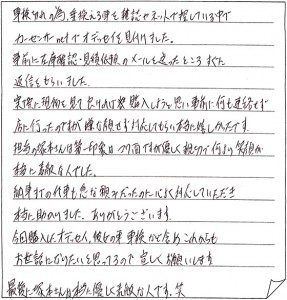 車検切れの為、車検え る車を雑誌やネットで探している中で
カーセンサーnetでオデッセイを見付けました。
事前に在庫確認・見積依頼のメールを送ったところすぐに
返信をもらいました。
実際に現物を見て良ければ即購入しようと思い事前に何も連絡せず
店に行ったのですが嫌な顔せず対応してもらい本当に嬉しかったです。
担当の塚本さんは第一印象はコワ面ですが優しく親切で何より笑顔が
本当に素敵な人でした。
納車までの仕事も急な頼みだったのに心よく対応していただき
本当に助かりました。ありがとうございます。
今回購入したオデッセイ、彼女の車 車検など含めこれからも
お世話になりたいと思ってるので宜しくお願いします
最後に塚本さんは本当に優しく素敵な人です。笑